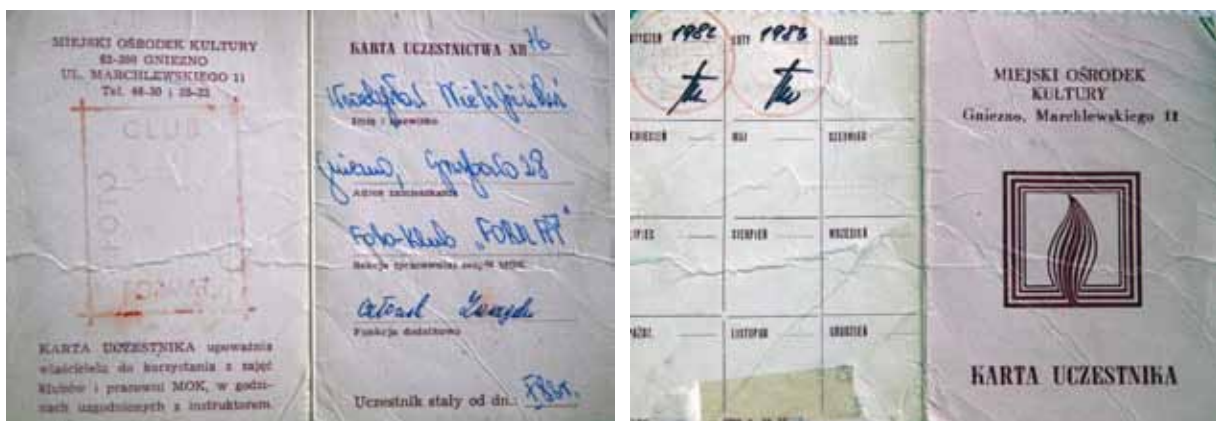 MIEJSKI OŚRODEK KULTURY
62-200 GNIEZNO
UL. MARCHLEWSKIEGO 11
Tel. 46-30 i
CLUB
FOTO
FORMAT
KARTA UCZESTNIKA upoważnia
właściciela do korzystania z zajęć
klubów i pracowni MOK, w godzi-
nach uzgodnionych z instruktorem.
KARTA UCZESTNICTWA NR 76
Imię i nazwisko
Gniezno, 28
Adres zamieszkania
Foto-klub „FORMAT"
MOK
członek Zarządu
Funkcja dodatkowa
Uczestnik stały od dn.:
STYCZEŃ 1982 LUTY 1983 MARZEC
KWIECIEŃ MAJ CZERWIEC
LIPIEC SIERPIEŃ WRZESIEŃ
PAŹDZ. LISTOPAD GRUDZIEŃ
MIEJSKI OŚRODEK
KULTURY
Gniezno, Marchlewskiego 11
KARTA UCZESTNIKA